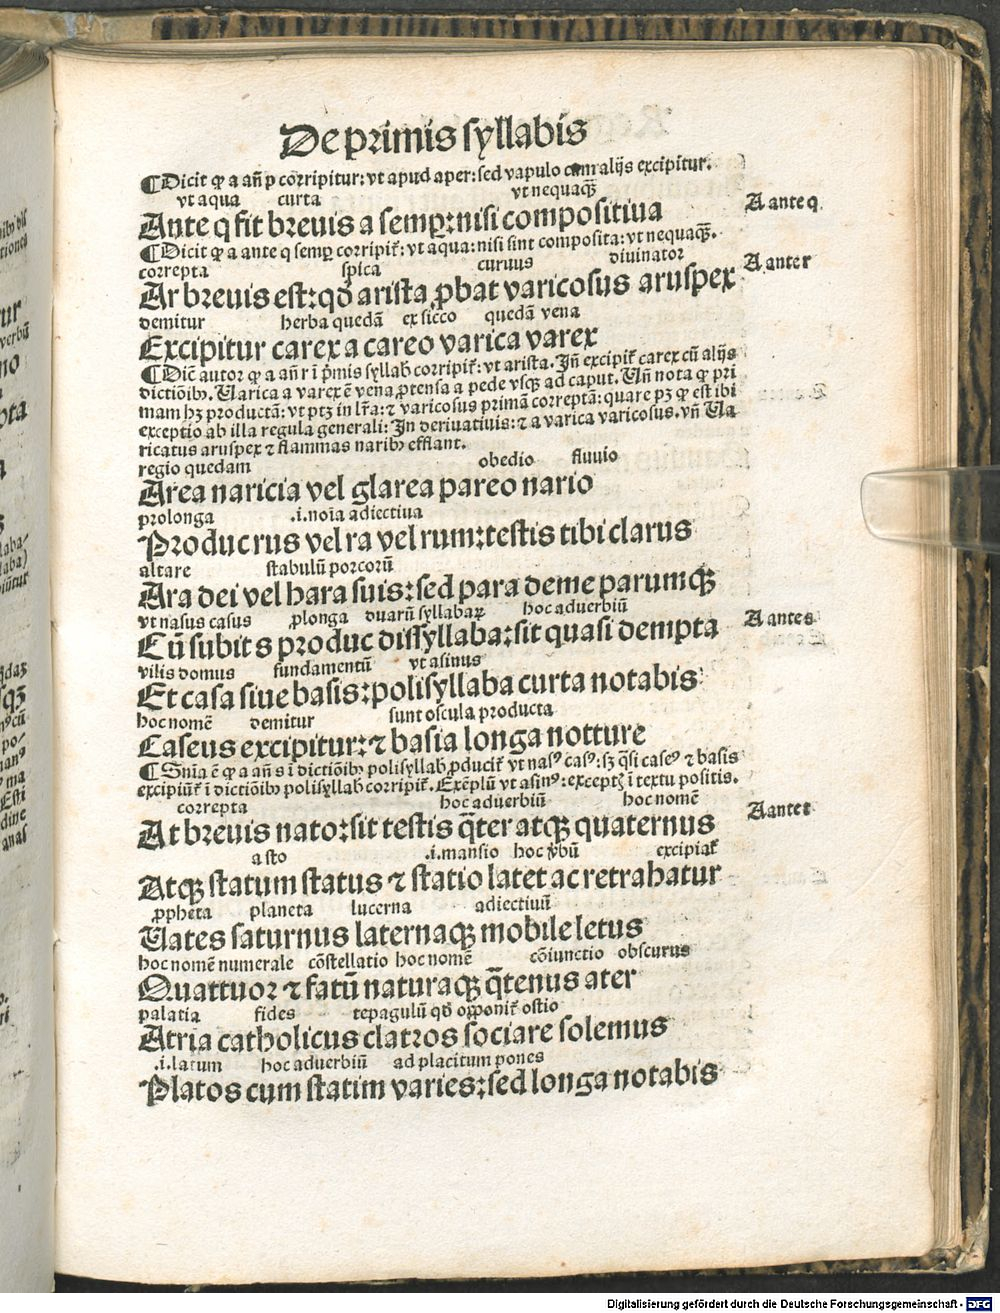 De primis syllabis
¶Dicit ꝙ a añ p corripitur: vt apud aper: sed vapulo cum alijs excipitur.
vt aqua curta vt nequaꝗ̃
Ante q fit breuis a semꝑ: nisi compositiua
A ante q
¶Dicit ꝙ a ante q semꝑ corripit̃: vt aqua: nisi sint composita: vt nequaꝗ̃.
correpta spica curuus diuinator
Ar breuis est: qđ arista ꝓbat varicosus aruspex
A ante r
demitur herba quedã ex sicco quedã vena
Excipitur carex a careo varica varex
¶Dic̃ autor ꝙ a añ r ĩ p̃mis syllab̃ corripit̃: vt arista. Iñ excipit̃ carex cũ alijs
dictiõibꝫ. Varica a varex ẽ vena ꝓtensa a pede vsqꝫ ad caput. Vñ nota ꝙ pri
mam hꝫ productã: vt ptꝫ in lr̃a: ⁊ varicosus primã correptã: quare pꝫ ꝙ est ibi
exceptio ab illa regula generali: In deriuatiuis: ⁊ a varica varicosus. vñ Va
ricatus aruspex ⁊ flammas naribꝫ efflant.
regio quedam obedio fluuio
Area naricia vel glarea pareo nario
prolonga .i. noĩa adiectiua
Produc rus vel ra vel rum: testis tibi clarus
altare stabulũ porcorũ
Ara dei vel hara suis: sed para deme parumqꝫ
vt nasus casus ꝓlonga duarũ syllabaꝝ hoc aduerbiũ
Cũ subit s produc dissyllaba: sit quasi dempta
A ante s
vilis domus fundamentũ vt asinus
Et casa siue basis: polisyllaba curta notabis
hoc nomẽ demitur sunt oscula producta
Caseus excipitur: ⁊ basia longa notture
¶Snĩa ẽ ꝙ a añ s ĩ dictiõibꝫ polisyllab̃ ꝓducit̃ vt nasꝰ casꝰ: sꝫ q̃si caseꝰ ⁊ basis
excipiũt̃ ĩ dictiõibꝫ polisyllab̃ corripit̃. Exẽplũ vt asinꝰ: exceptꝭ ĩ textu positis.
correpta hoc aduerbiũ hoc nomẽ
At breuis nato: sit testis q̃ter atqꝫ quaternus
A ante t
a sto .i. mansio hoc v̉bũ excipiat̃
Atqꝫ statum status ⁊ statio latet ac retrahatur
ꝓpheta planeta lucerna adiectiuũ
Vates saturnus laternaqꝫ mobile letus
hoc nomẽ numerale cõstellatio hoc nomẽ cõiunctio obscurus
Quattuor ⁊ fatũ naturaqꝫ q̃tenus ater
palatia fides tepagulũ qđ oꝓponit̃ ostio
Atria catholicus clatros sociare solemus
.i. latum hoc aduerbiũ ad placitum pones
Platos cum statim varies: sed longa notabis
Digitalisierung gefördert durch die Deutsche Forschungsgemeinschaft - DFG